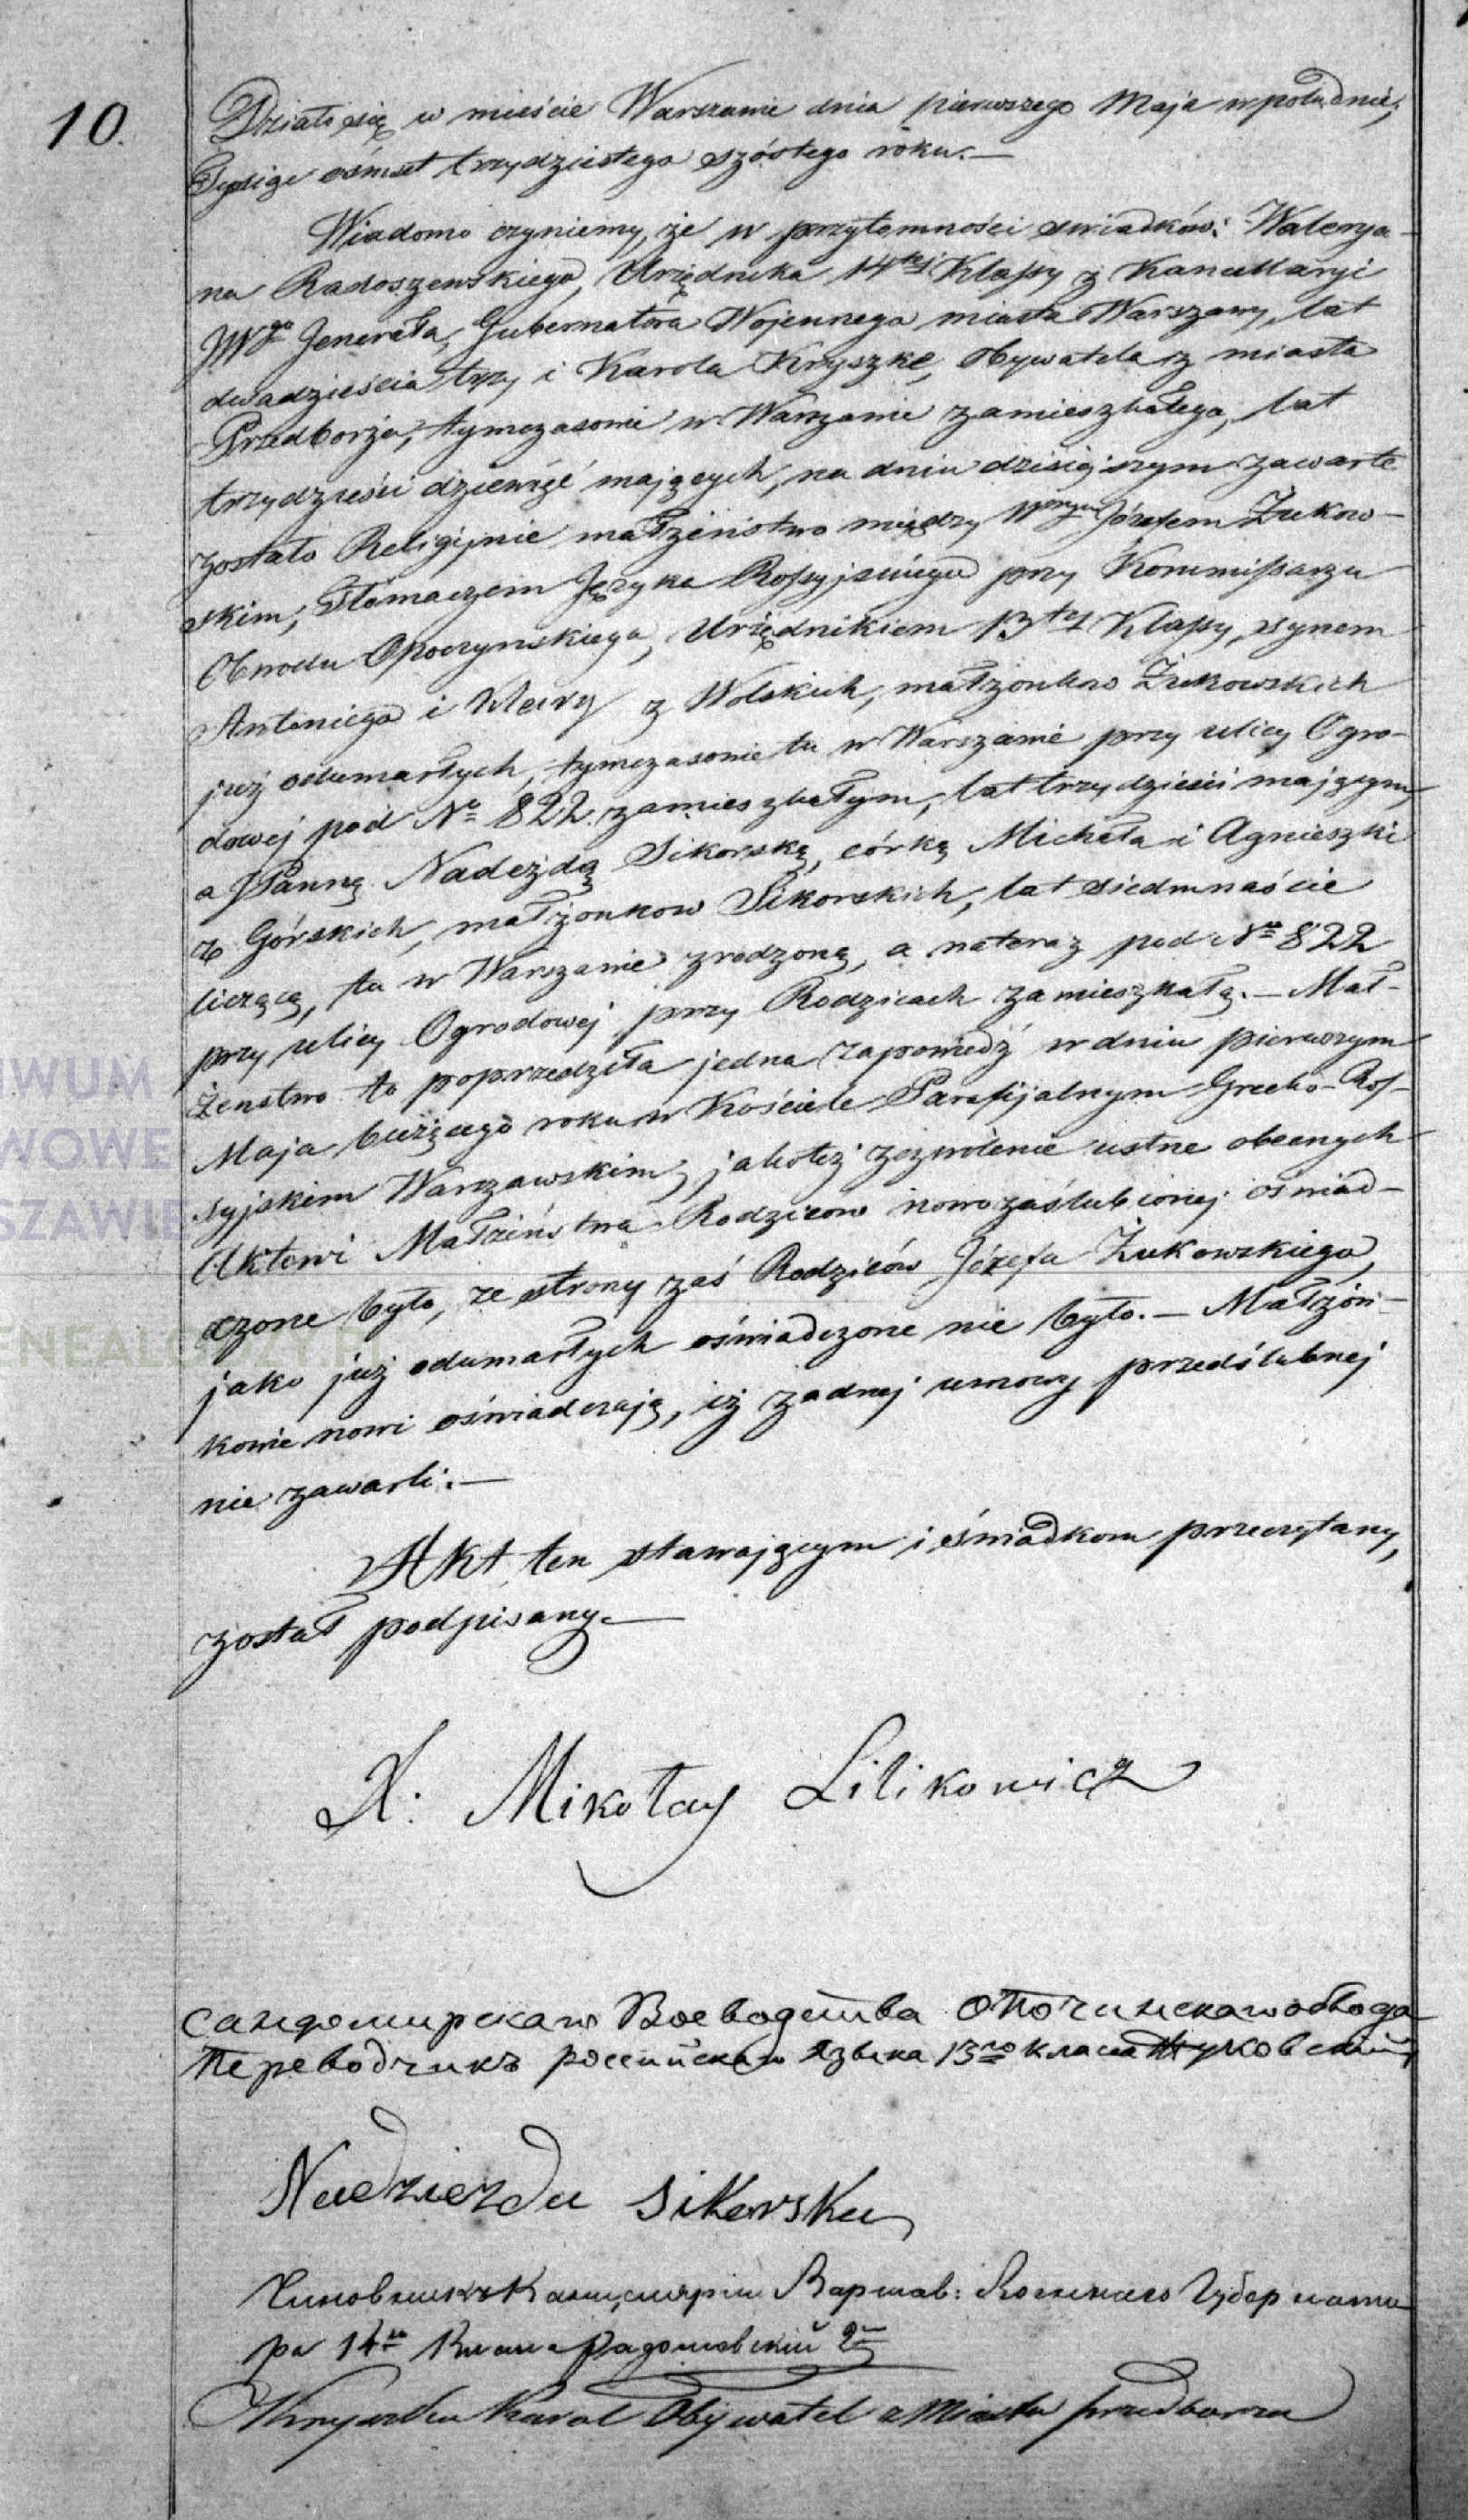 10.
Działo się w mieście Warszawie dnia pierwszego Maja w południe,
Tysiąc ośmset trzydziestego szóstego roku.—
Wiadomo czyniemy, że w przytomności swiadków: Walerya-
na Radoszewskiego, Urzędnika 14tej Klassy z Kancellaryi
JWgo Jenerała, Gubernatora Wojennego miasta Warszawy, lat
dwadzieścia trzy i Karola Kryszkę, Obywatela z miasta
Przedborza, tymczasowie w Warszawie zamieszkałego, lat
trzydzieści dziewięć mających, na dniu dzisiejszym zawarte
zostało Religijnie małżeństwo między Józefem Żukow-
skim, Tłómaczem Języka Rossyjskiego przy Kommissarzu
Obwodu Opoczynskiego, Urzędnikiem 13tej Klassy, synem
Antoniego i Klary z Wolskich, małżonków Żukowskich
już odumarłych, tymczasowie tu w Warszawie przy ulicy Ogro-
dowej pod No 822. zamieszkałym, lat trzydzieści mającym,
a Panną Nadeżdą Sikorską, córką Michała i Agnieszki
z Górskich, małżonkow Sikorskich, lat siedmnaście
liczącą, tu w Warszawie zrodzoną, a nateraz pod No 822
przy ulicy Ogrodowej przy Rodzicach zamieszkałą.— Mał-
żenstwo to poprzedziła jedna zapowiedź w dniu pierwszym
Maja bieżącego roku w Kościele Parafijalnym Grecko-Ros-
syjskim Warszawskim, jakoteż zezwolenie ustne obecnych
Aktowi Małżeństwa Rodziców nowozaślubionej oświad-
czone było, ze strony zaś Rodziców Józefa Żukowskiego,
jako już odumarłych oświadczone nie było.— Małżon-
kowie nowi oświadczają, iż żadnej umowy przedślubnej
nie zawarli.—
Akt ten stawającym i świadkom przeczytany,
został podpisany.—
X. Mikołay Lilikowicz
Сандомирскаго Воеводства Опочинскаго обвода
Переводчикъ россійскаго языка 13го класса Жуковскій
Nadziezda Sikorska
Чиновникъ Канцеляріи Варшав: Военнаго Губернато
ра 14го Класса Радошевскій 2й
Kryszka Karol Obywatel z Miasta Przedborza
IWUM
WOWE
SZAWIE
ENEALODZY.PL